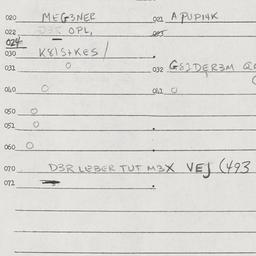 020 MEG3NER 021 APUPI4K
022 D3R OPL,
024
030 K8IS+KES/
031 O 032 G8IDER3M
040 O 041 O
050 O
051 O
060 O
070 D3R LEBER TUT M3X VEJ (493
072